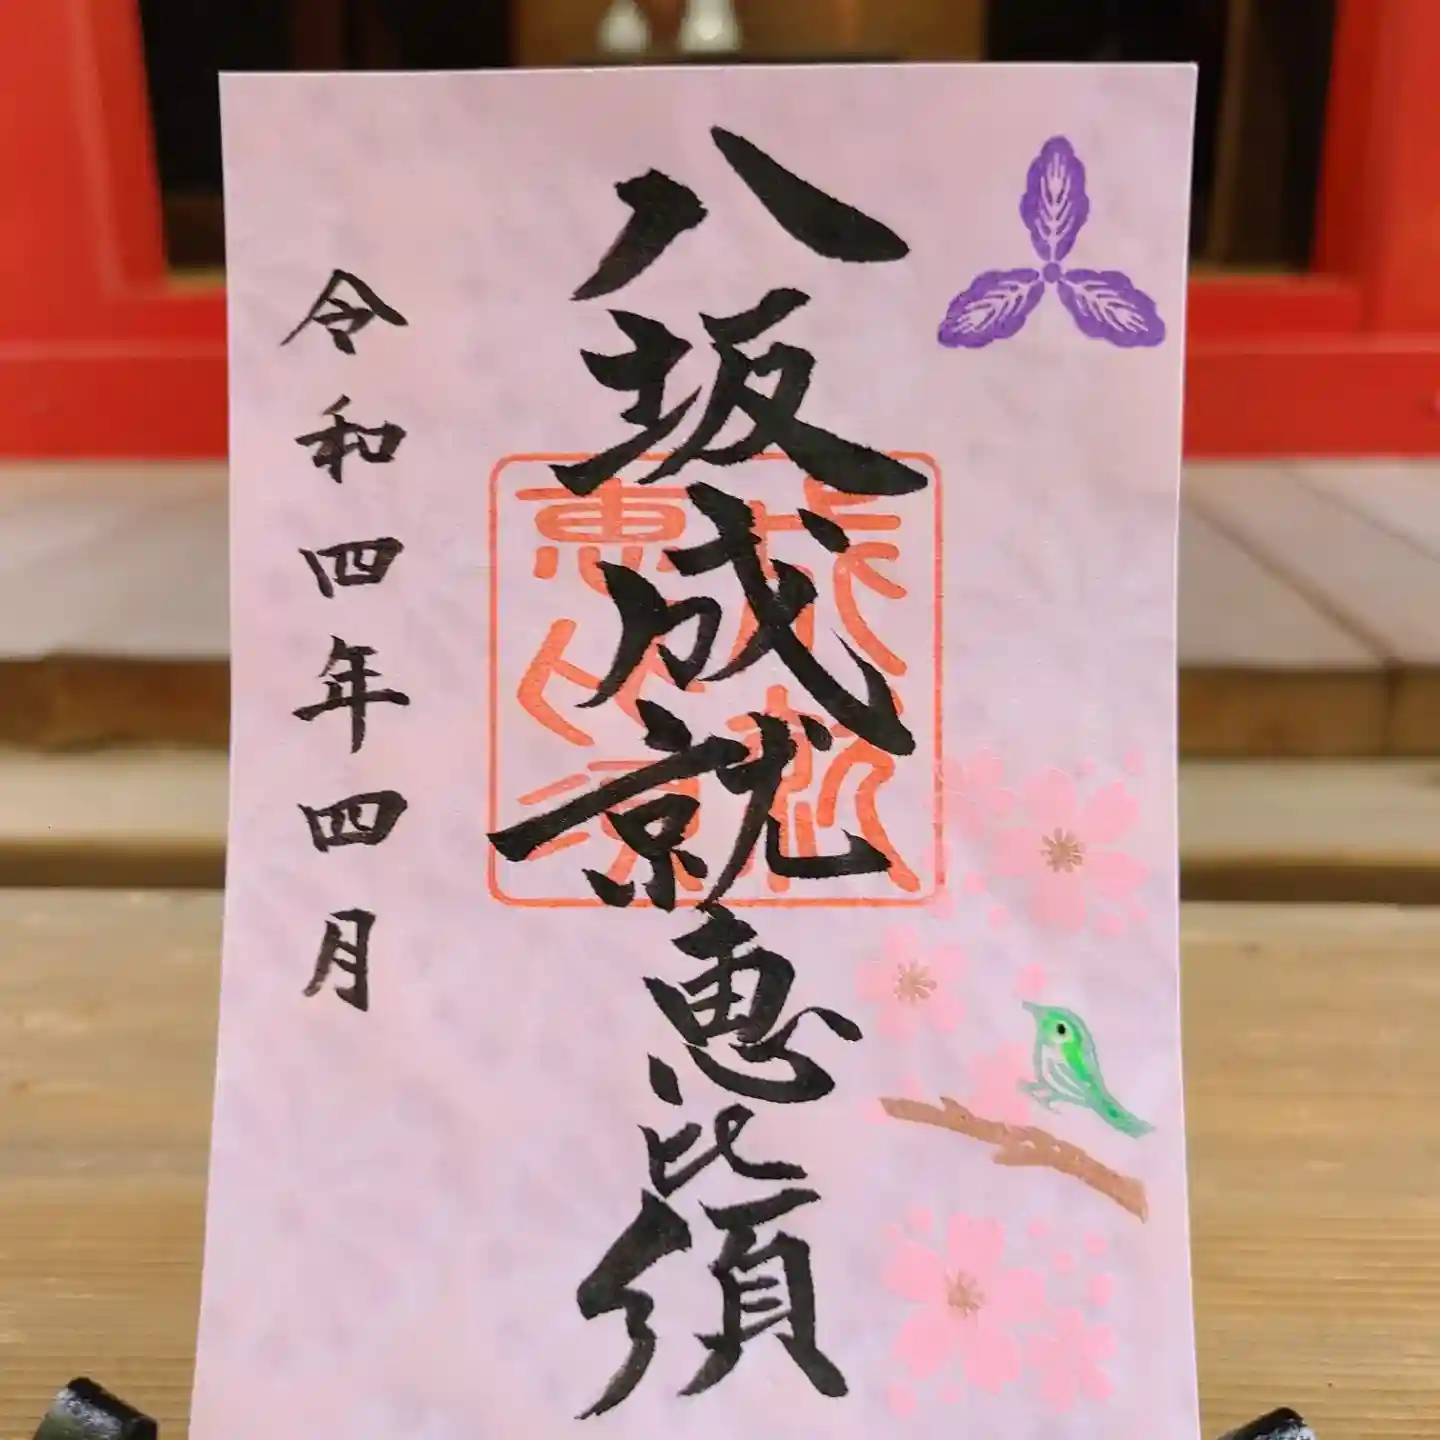 八坂成就恵比須
成就
恵比須
令和四年四月